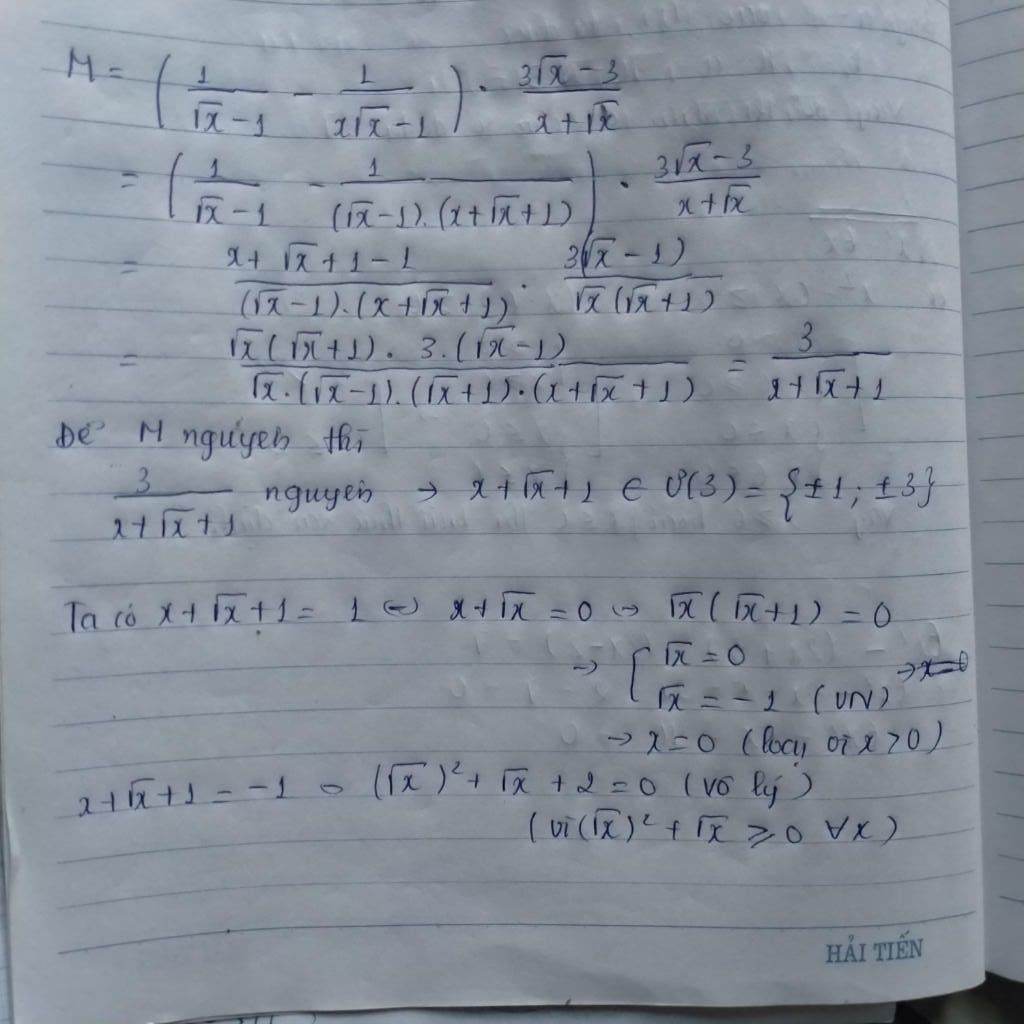 M = ( 1/(√x − 1) − 1/(x√x − 1) ) · (3√x − 3)/(x + √x)
= ( 1/(√x − 1) − 1/((√x−1).(x+√x+1)) ) · (3√x − 3)/(x + √x)
= (x + √x + 1 − 1)/((√x−1).(x+√x+1)) · 3(√x − 1)/(√x(√x+1))
= (√x(√x+1) · 3.(√x−1))/(√x.(√x−1).(√x+1).(x+√x+1)) = 3/(x+√x+1)
Để M nguyên thì
3/(x+√x+1) nguyên → x+√x+1 ∈ Ư(3) = {±1; ±3}
Ta có x+√x+1 = 1 ↔ x+√x = 0 ↔ √x(√x+1) = 0
→ [ √x = 0
√x = −1 (VN) → x=0
→ x = 0 (loại vì x > 0)
x+√x+1 = −1 ↔ (√x)² + √x + 2 = 0 (vô lý)
(vì (√x)² + √x ⩾ 0 ∀x)
HẢI TIẾN